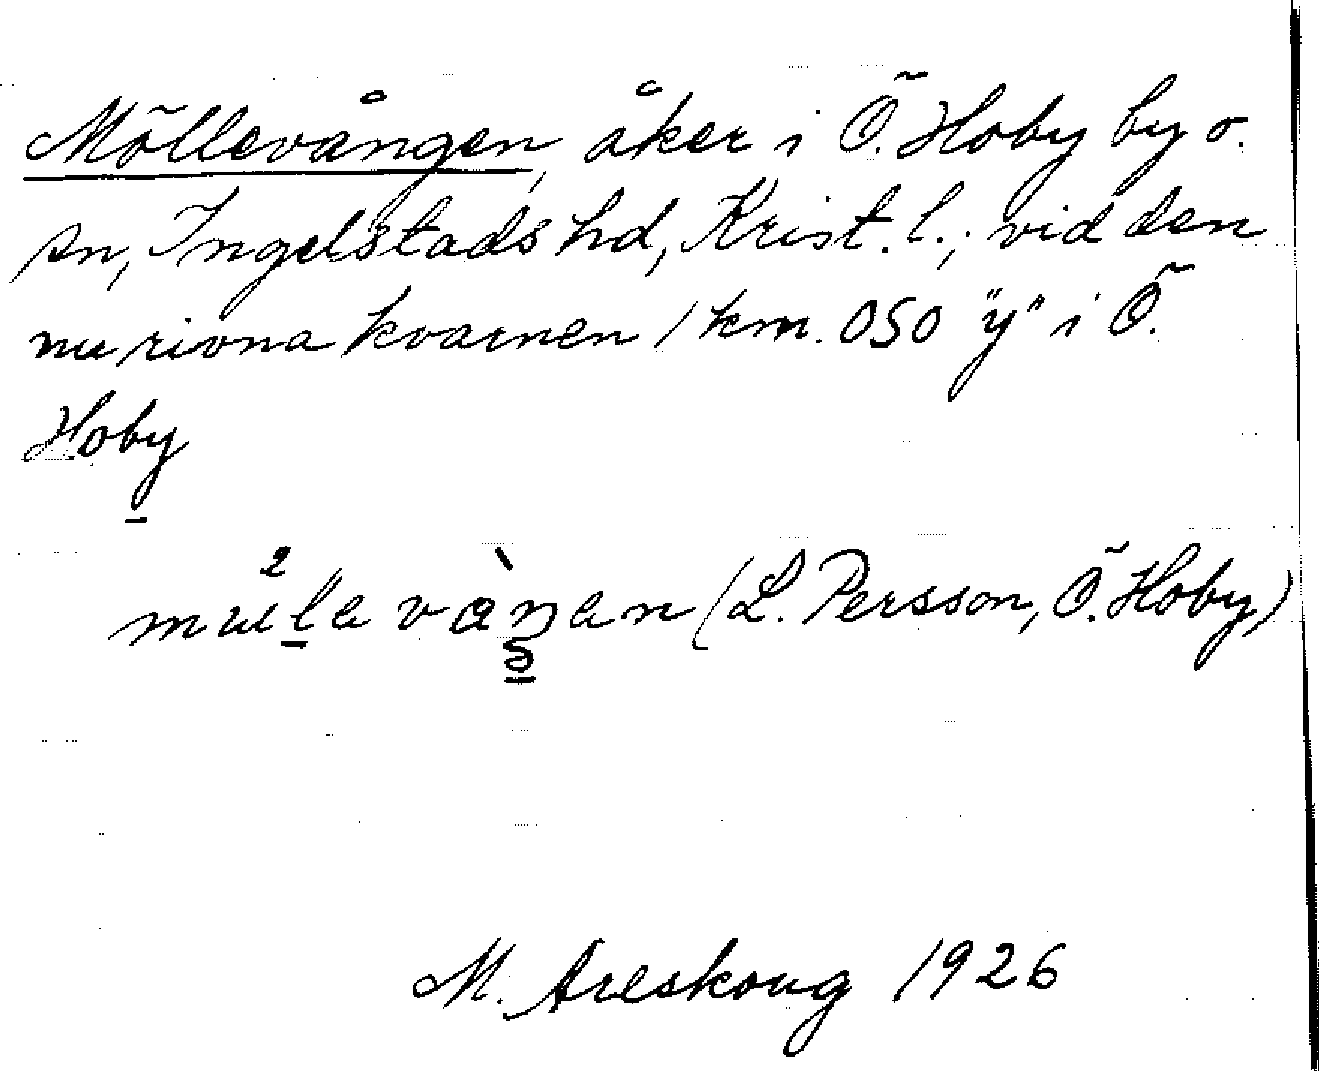 Möllevången, åker i Ö. Hoby by o.
sn, Ingelstads hd, Krist. l.; vid den
nu rivna kvarnen 1 km. OSO "y" i Ö.
Hoby
(L. Persson, Ö. Hoby)
M. Areskoug 1926